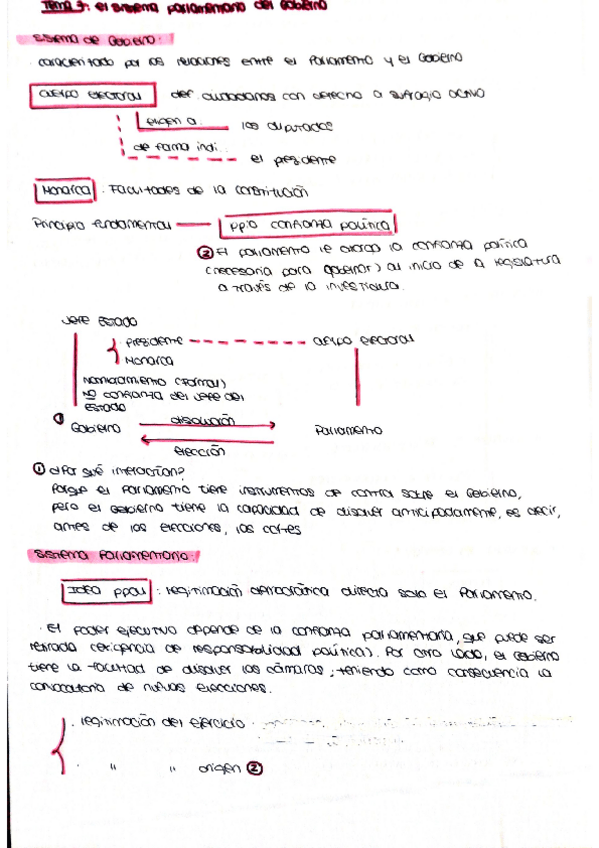 Tema 3: el sistema parlamentario del Gobierno
Sistema de Gobierno:
· caracterizado por las relaciones entre el Parlamento y el Gobierno
cuerpo electoral def. ciudadanos con derecho a sufragio activo
eligen a... los diputados
de forma indi... el presidente
Monarca · Facultades de la constitución
Principio fundamental ppio confianza política
② El parlamento le otorga la confianza política
(necesaria para gobernar) al inicio de la legislatura
a través de la investidura.
Jefe Estado
· Presidente cuerpo electoral
· Monarca
Nombramiento (formal)
NO confianza del Jefe del
Estado
① Gobierno disolución Parlamento
elección
① ¿Por qué interacción?
Porque el Parlamento tiene instrumentos de control sobre el Gobierno,
pero el Gobierno tiene la capacidad de disolver anticipadamente, es decir,
antes de las elecciones, las cortes
Sistema Parlamentario:
IDEA PPAL : legitimación democrática directa solo el Parlamento.
· El Poder ejecutivo depende de la confianza parlamentaria, que puede ser
retirada (exigencia de responsabilidad política). Por otro lado, el Gobierno
tiene la facultad de disolver las cámaras; teniendo como consecuencia la
convocatoria de nuevas elecciones.
· legitimación del ejercicio ·
· " " origen ②